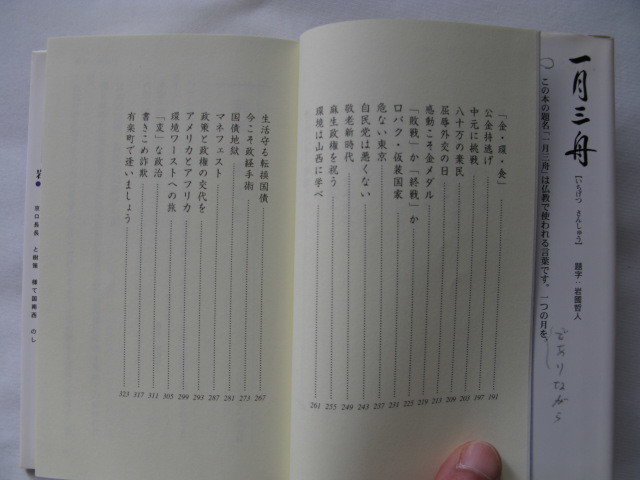 一月三舟
【いちげつ さんしゅう】
題字:岩國哲人
この本の題名「一月三舟」は仏教で使われる言葉です。一つの月を、
でありながら
「金・環・食」 191
公金持逃げ 197
中元に挑戦 205
八十万の棄民 209
屈辱外交の日 213
感動こそ金メダル 219
「敗戦」か「終戦」か 225
ロバク・仮装国家 231
危ない東京 237
自民党は悪くない 243
敬老新時代 249
麻生政権を祝う 255
環境は山西に学べ 261
生活守る転換国債 267
今こそ政経手術 273
国債地獄 281
マネフェスト 287
政策と政権の交代を 293
アメリカとアフリカ 299
環境ワーストへの旅 305
「変」な政治 311
書きこめ詐欺 317
有楽町で逢いましょう 323